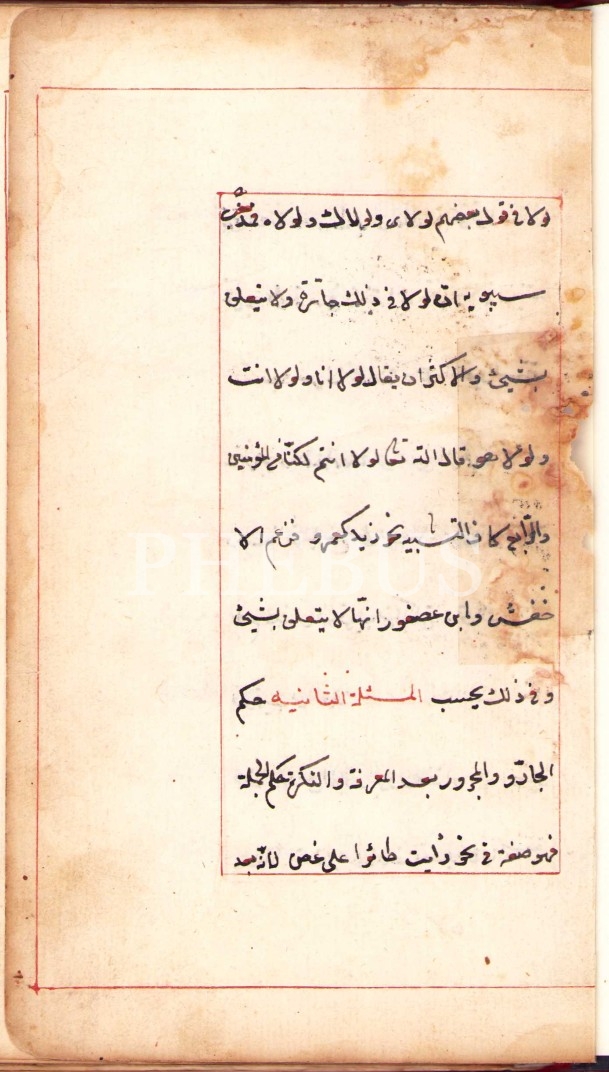 لولا فى قول بعضهم لولاى ولولاك ولولاه فمذهب
سيبويه ان لولا فى ذلك جارّة ولا يتعلق
بشيئ والاكثر ان يقال لولا انا ولولا انت
ولولا هو قال الله تعا لولا انتم لكنّا مؤمنين
والرّابع كاف التشبيه نحو زيد كعمرو فزعم الا
خفش وابن عصفور انهّا لا يتعلق بشيئ
وفى ذلك بحسب المسئلة الثانيه حكم
الجارّ والمجرور بعد المعرفة والنكرة حكم الجملة
فهو صفة فى نحو رأيت طائرا على غصن لانّه بعد
PHEBUS